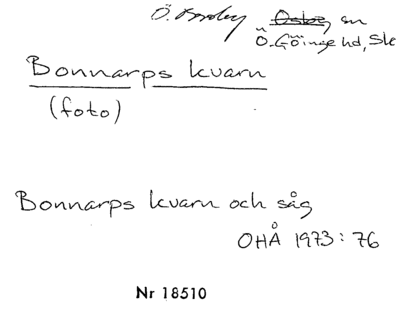 Ö. Broby Osby sn
Ö. Göinge hd, Sk
Bonnarps kvarn
(foto)
Bonnarps kvarn och såg
OHÅ 1973: 76
Nr 18510